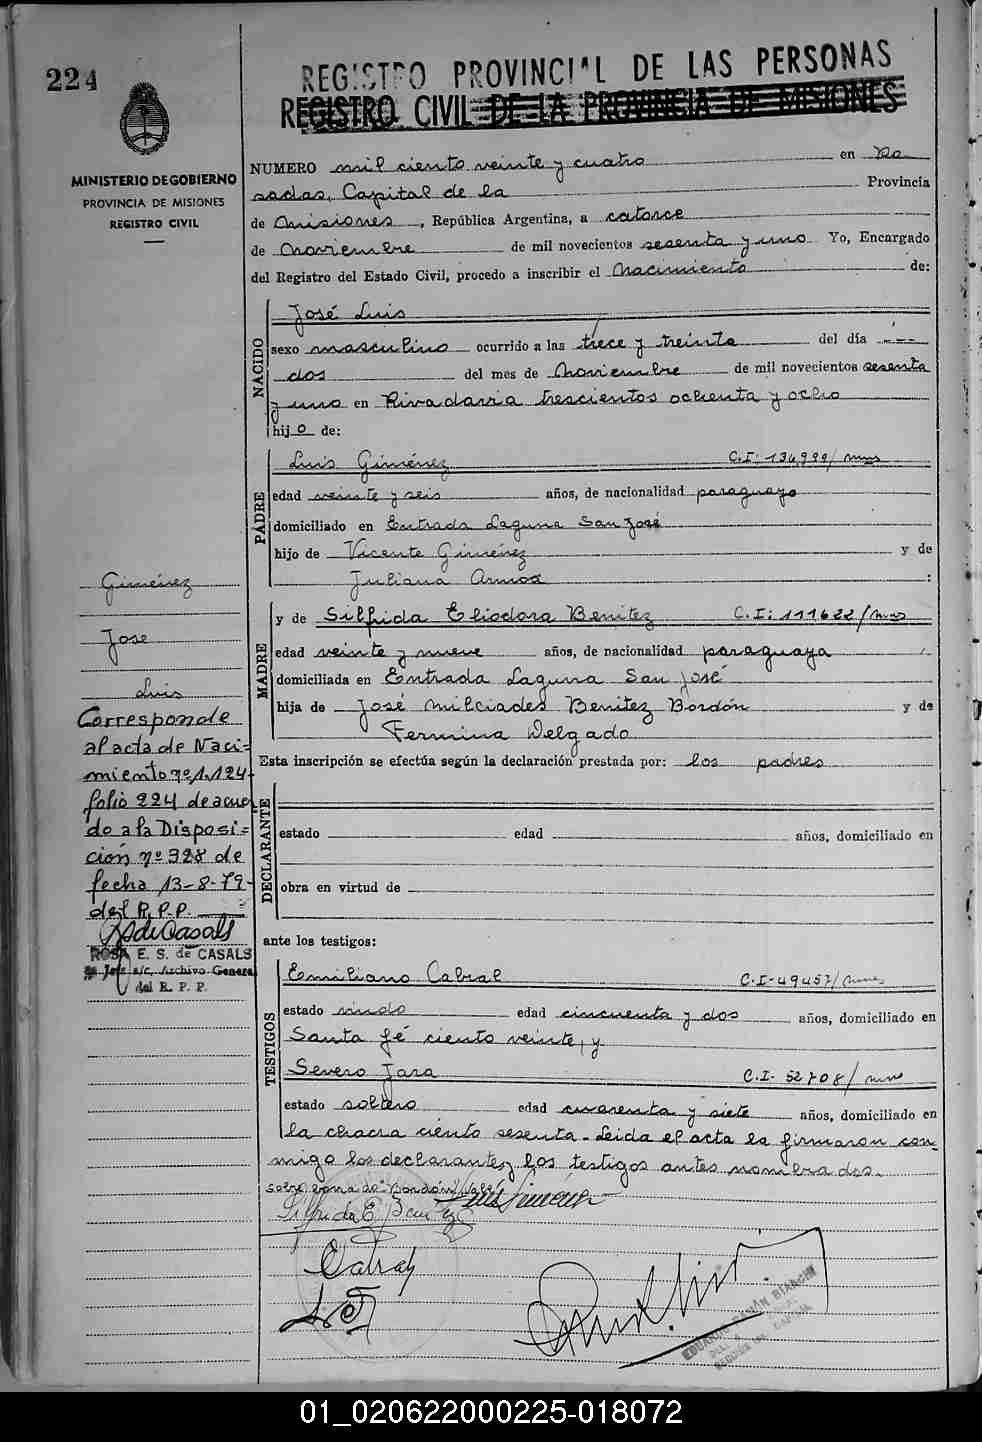 224
REGISTRO PROVINCIAL DE LAS PERSONAS
REGISTRO CIVIL DE LA PROVINCIA DE MISIONES
MINISTERIO DE GOBIERNO
PROVINCIA DE MISIONES
REGISTRO CIVIL
NUMERO mil ciento veinte y cuatro en Po
sadas, Capital de la Provincia
de Misiones, República Argentina, a catorce
de Noviembre de mil novecientos sesenta y uno Yo, Encargado
del Registro del Estado Civil, procedo a inscribir el Nacimiento de:
NACIDO
José Luis
sexo masculino ocurrido a las trece y treinta del día
dos del mes de Noviembre de mil novecientos sesenta
y uno en Rivadavia trescientos ochenta y ocho
hijo de:
PADRE
Luis Giménez C.I: 134,999/mns
edad veinte y seis años, de nacionalidad paraguayo
domiciliado en Entrada Laguna San José
hijo de Vicente Giménez y de
Juliana Armoa :
MADRE
y de Silfrida Eliodora Benitez C.I: 111622/mns
edad veinte y nueve años, de nacionalidad paraguaya
domiciliada en Entrada Laguna San José
hija de José Milciades Benitez Bordón y de
Fermina Delgado.
Esta inscripción se efectúa según la declaración prestada por: los padres
DECLARANTE
estado edad años, domiciliado en
obra en virtud de
ante los testigos:
TESTIGOS
Emiliano Cabral C.I-49457/mns
estado viudo edad cincuenta y dos años, domiciliado en
Santa Fé ciento veinte, y
Severo Jara C.I- 52708/mns
estado soltero edad cuarenta y siete años, domiciliado en
la chacra ciento sesenta - Leida el acta la firmaron con-
migo los declarantes y los testigos antes nombrados.
Luis Giménez
Silfrida E. Benitez
Cabral
Giménez
Jose
Luis
Corresponde
al acta de Naci=
miento nº 1.124-
folio 224 de acuer
do a la Disposi=
ción nº 328 de
fecha 13-8-79-
del R.P.P.
RS de Casals
ROSA E. S. de CASALS
Jefe a/c. Archivo General
del R. P. P.
01_020622000225-018072